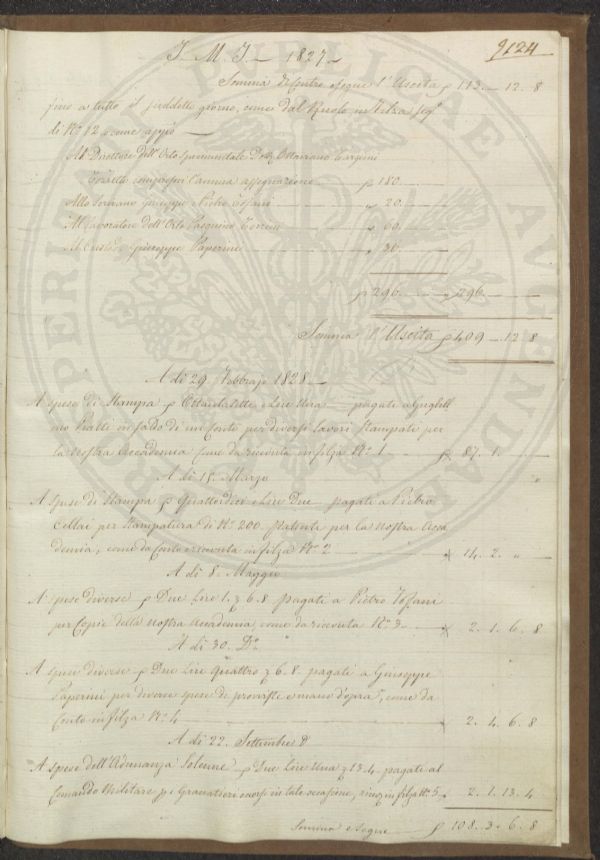 J. M. J. — 1827 —
9124
Somma di contro e segue l'Uscita p 113. — 12. 8
fino a tutto il suddetto giorno, come dal Ruolo in filza Seg.
di N.º 12 come appiè —
Al Direttore dell'Orto Sperimentale Dott. Ottaviano Targioni
Tozzetti compresovi l'annua assegnazione — p 180 —
Allo Scrivano Giuseppe Pietro Tofani — " 20 —
Al Lavoratore dell'Orto Pasquino — " 60 —
Al Custode Giuseppe Paperini — " 36 —
p 296 — p 296 —
Somma l'Uscita p 409 — 12. 8
A di 29. Febbrajo 1828 —
A spese di Stampa p Ottantasette e Lire Una — pagati a Guglielmo
Piatti in saldo di un Conto per diversi lavori Stampati per
la nostra Accademia come da ricevuta in filza N.º 1 — p. 87. 1. —
A di 15. Marzo "
A spese di Stampa p Quattordici e Lire Due — pagati a Pietro
Cellai per Stampatura di N.º 200. per la nostra Acca
demia, come da Conto e ricevuta in filza N.º 2 — 14. 2. " —
A di 8. Maggio
A spese diverse p Due Lire 1. e 6. 8. pagati a Pietro Tofani
per Copie della nostra Accademia, come da ricevuta N.º 3. — 2. 1. 6. 8
A di 30. D.º "
A spese diverse p Due Lire Quattro e 6. 8. pagati a Giuseppe
Paperini per diverse spese di provviste e mano d'opra, come da
Conto in filza N.º 4 — 2. 4. 6. 8
A di 22. Settembre D.
A spese dell'Adunanza Solenne p Due Lire Una e 13. 4. pagati al
Comando Militare p i Granatieri in tale occasione, in filza N.º 5. 2. 1. 13. 4
Somma e segue — p 108. 3. 6. 8
PROSPERITATI PUBLICAE AUGENDAE